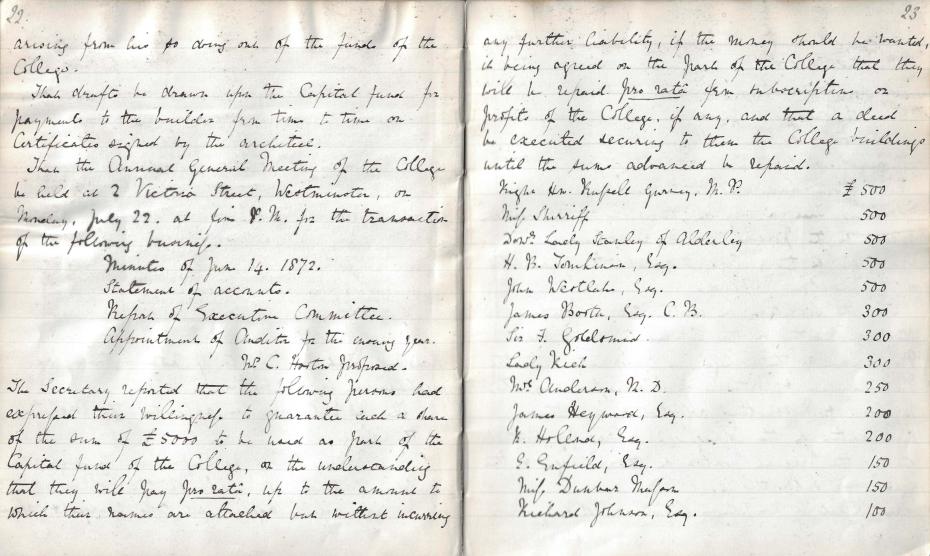 22.
arising from his so doing out of the funds of the
College.
That drafts be drawn upon the Capital fund for
payments to the builder from time to time on
Certificates signed by the architect.
That the Annual General Meeting of the College
be held at 2 Victoria Street, Westminster, on
Monday, July 22. at four P.M. for the transaction
of the following business.
Minutes of June 14. 1872.
Statement of accounts.
Report of Executive Committee.
Appointment of Auditor for the ensuing year.
Mr C. Hoston proposed.
The Secretary reported that the following persons had
expressed their willingness to guarantee each a share
of the sum of £5000 to be used as part of the
Capital fund of the College, on the understanding
that they will pay pro ratâ, up to the amount to
which their names are attached but without incurring
23
any further liability, if the money should be wanted,
it being agreed on the part of the College that they
will be repaid pro ratâ from subscriptions or
profits of the College, if any, and that a deed
be executed securing to them the College buildings
until the sums advanced be repaid.
Right Hn. Russell Gurney, M.P. £500
Miss Shirriff 500
Dowr. Lady Stanley of Alderley 500
H. B. Tomkinson, Esq. 500
John Westlake, Esq. 500
James Booth, Esq. C.B. 300
Sir F. Goldsmid. 300
Lady Rich 300
Mrs Anderson, M.D. 250
James Heywood, Esq. 200
R. Holland, Esq. 200
E. Enfield, Esq. 150
Miss Dunbar Masson 150
Richard Johnson, Esq. 100